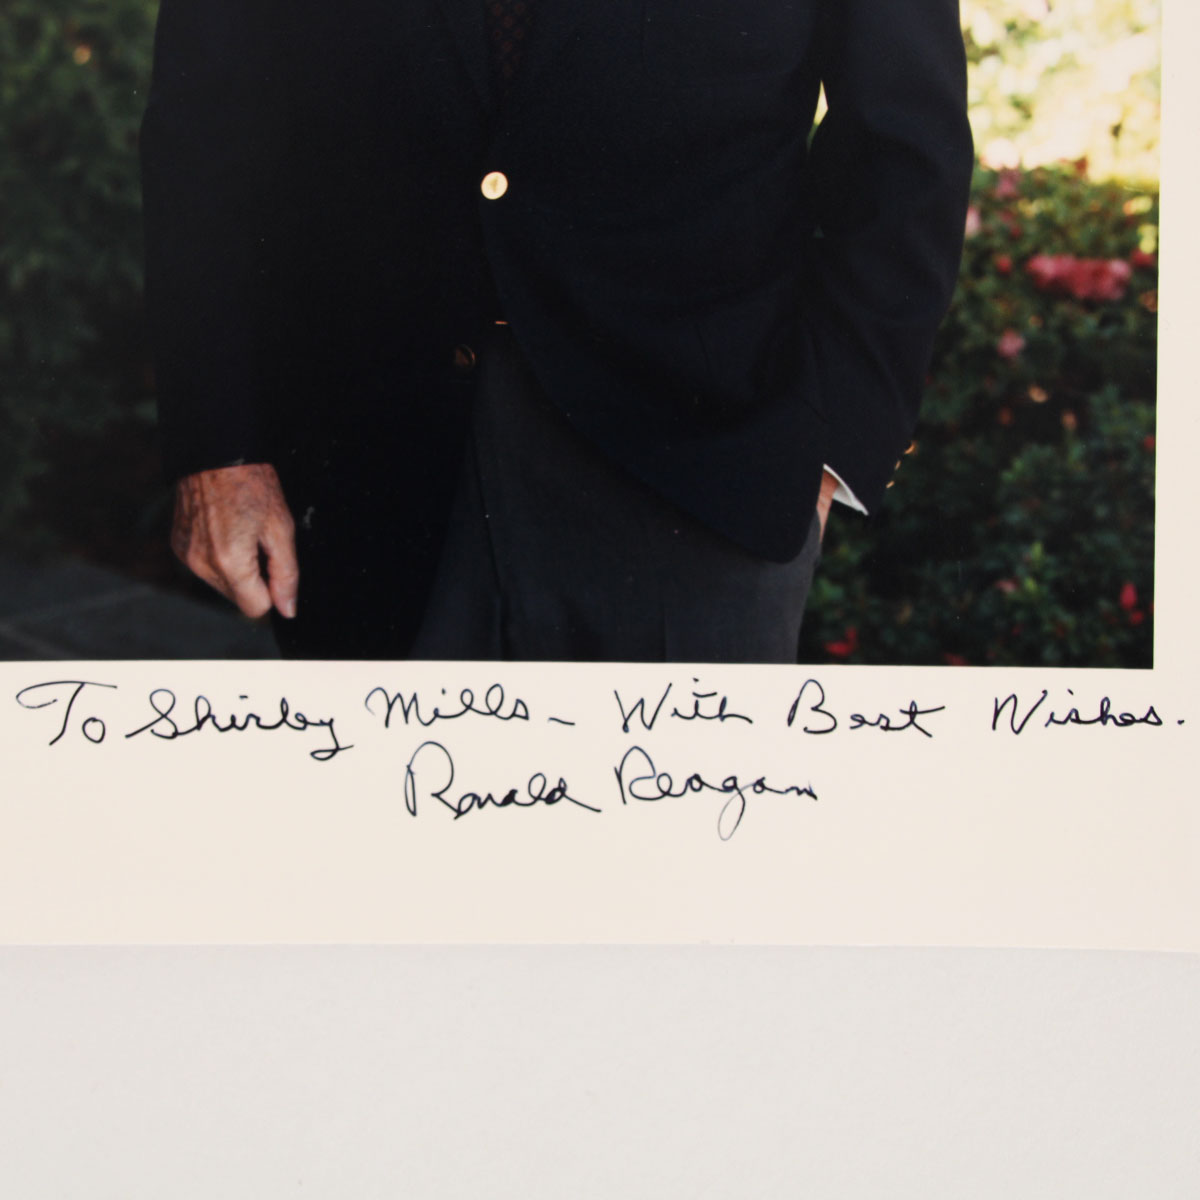 To Shirley Mills - With Best Wishes.
Ronald Reagan